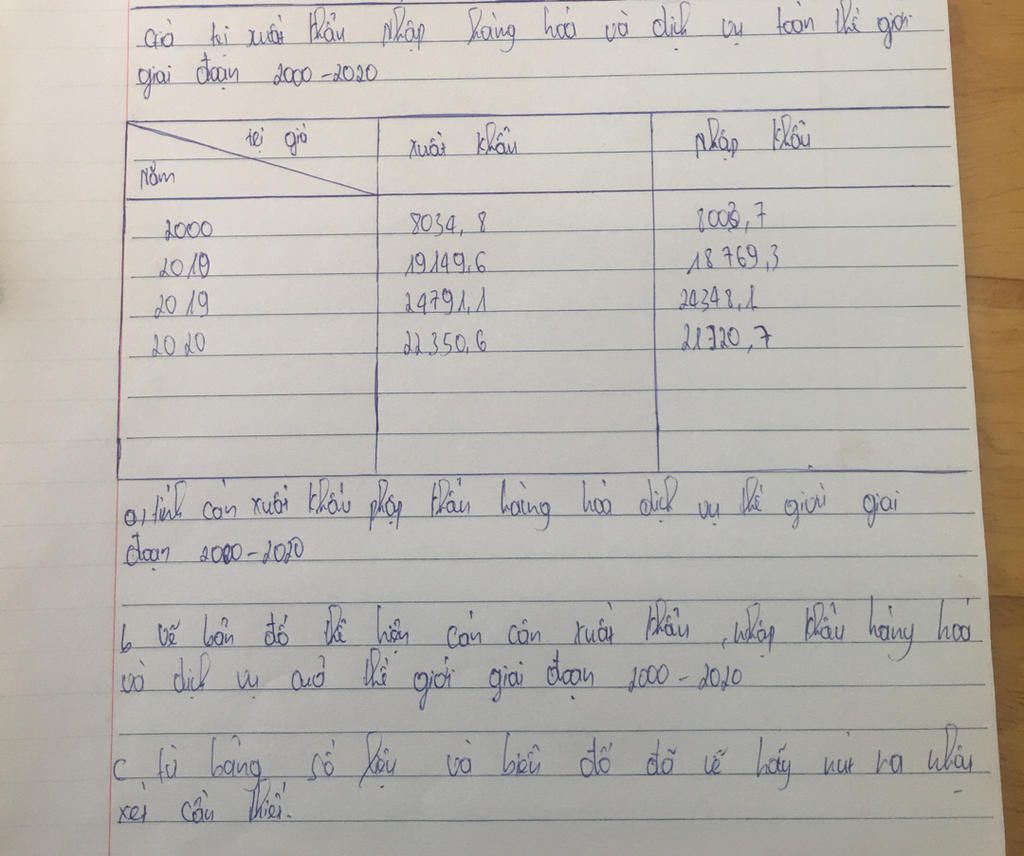 Giá trị xuất khẩu Nhập hàng hoá và dịch vụ toàn thế giới
giai đoạn 2000-2020
trị giá xuất khẩu Nhập khẩu
Năm
2000 8034,8 8003,7
2010 19149,6 18769,3
2019 24791,1 24348,1
2020 22350,6 21720,7
a, tính cán xuất khẩu nhập khẩu hàng hoá dịch vụ thế giới giai
đoạn 2000-2020
b vẽ bản đồ thể hiện cán cân xuất khẩu, nhập khẩu hàng hoá
và dịch vụ của thế giới giai đoạn 2000-2020
c, từ bảng số liệu và biểu đồ đã vẽ hãy rút ra nhận
xét cần thiết.